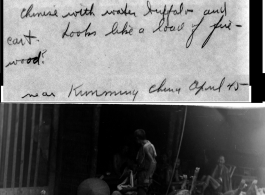 Chinese with water buffalo and
cart. Looks like a load of fire
wood?
near Kunming China April 45